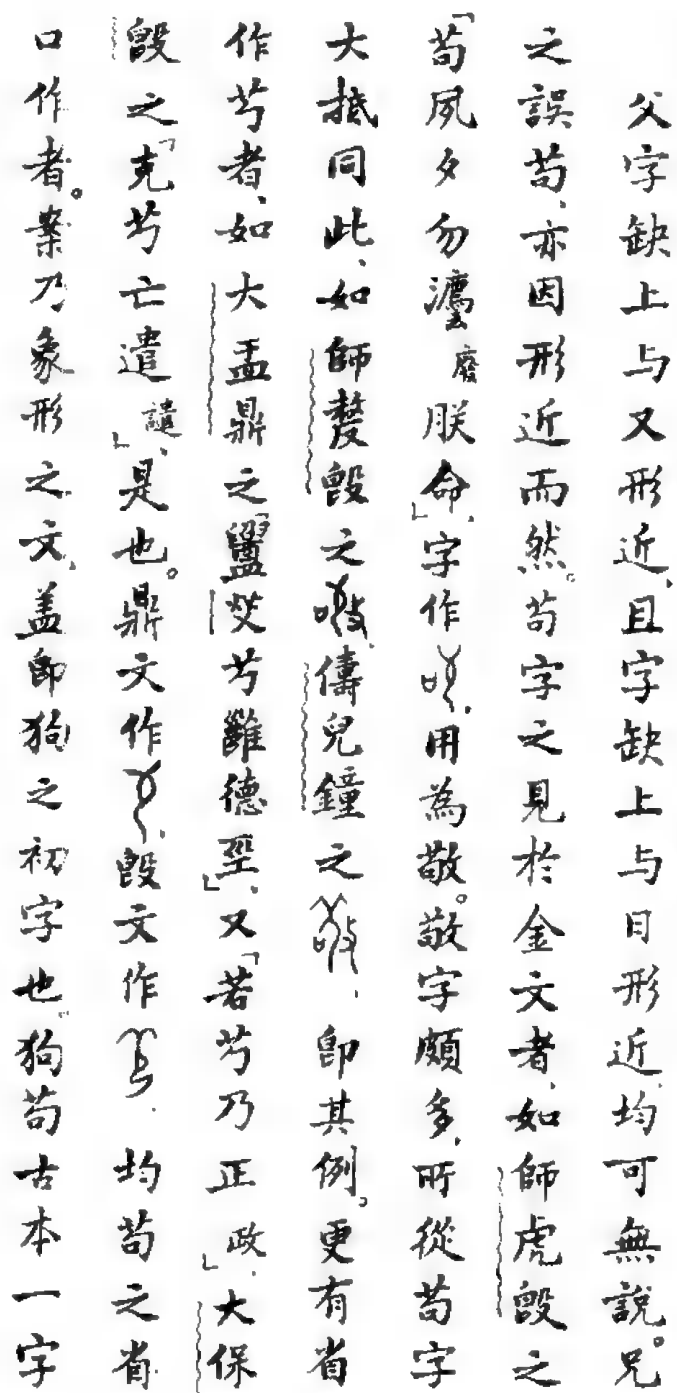 父字缺上与又形近、且字缺上与日形近、均可無說。兄
之誤茍、亦因形近而然。茍字之見於金文者、如師虎𣪘之
「茍夙夕勿灋廢朕命」、字作、用為敬。敬字頗多、所從茍字
大抵同此、如師𠩺𣪘之、儔兒鐘之、即其例。更有省
作芍者、如大盂鼎之「焂芍雝德巠」、又「若芍乃正政」、大保
𣪘之「克芍亡遣譴」、是也。鼎文作、𣪘文作、均茍之省
口作者。案乃象形之文、蓋即狗之初字也。狗茍古本一字